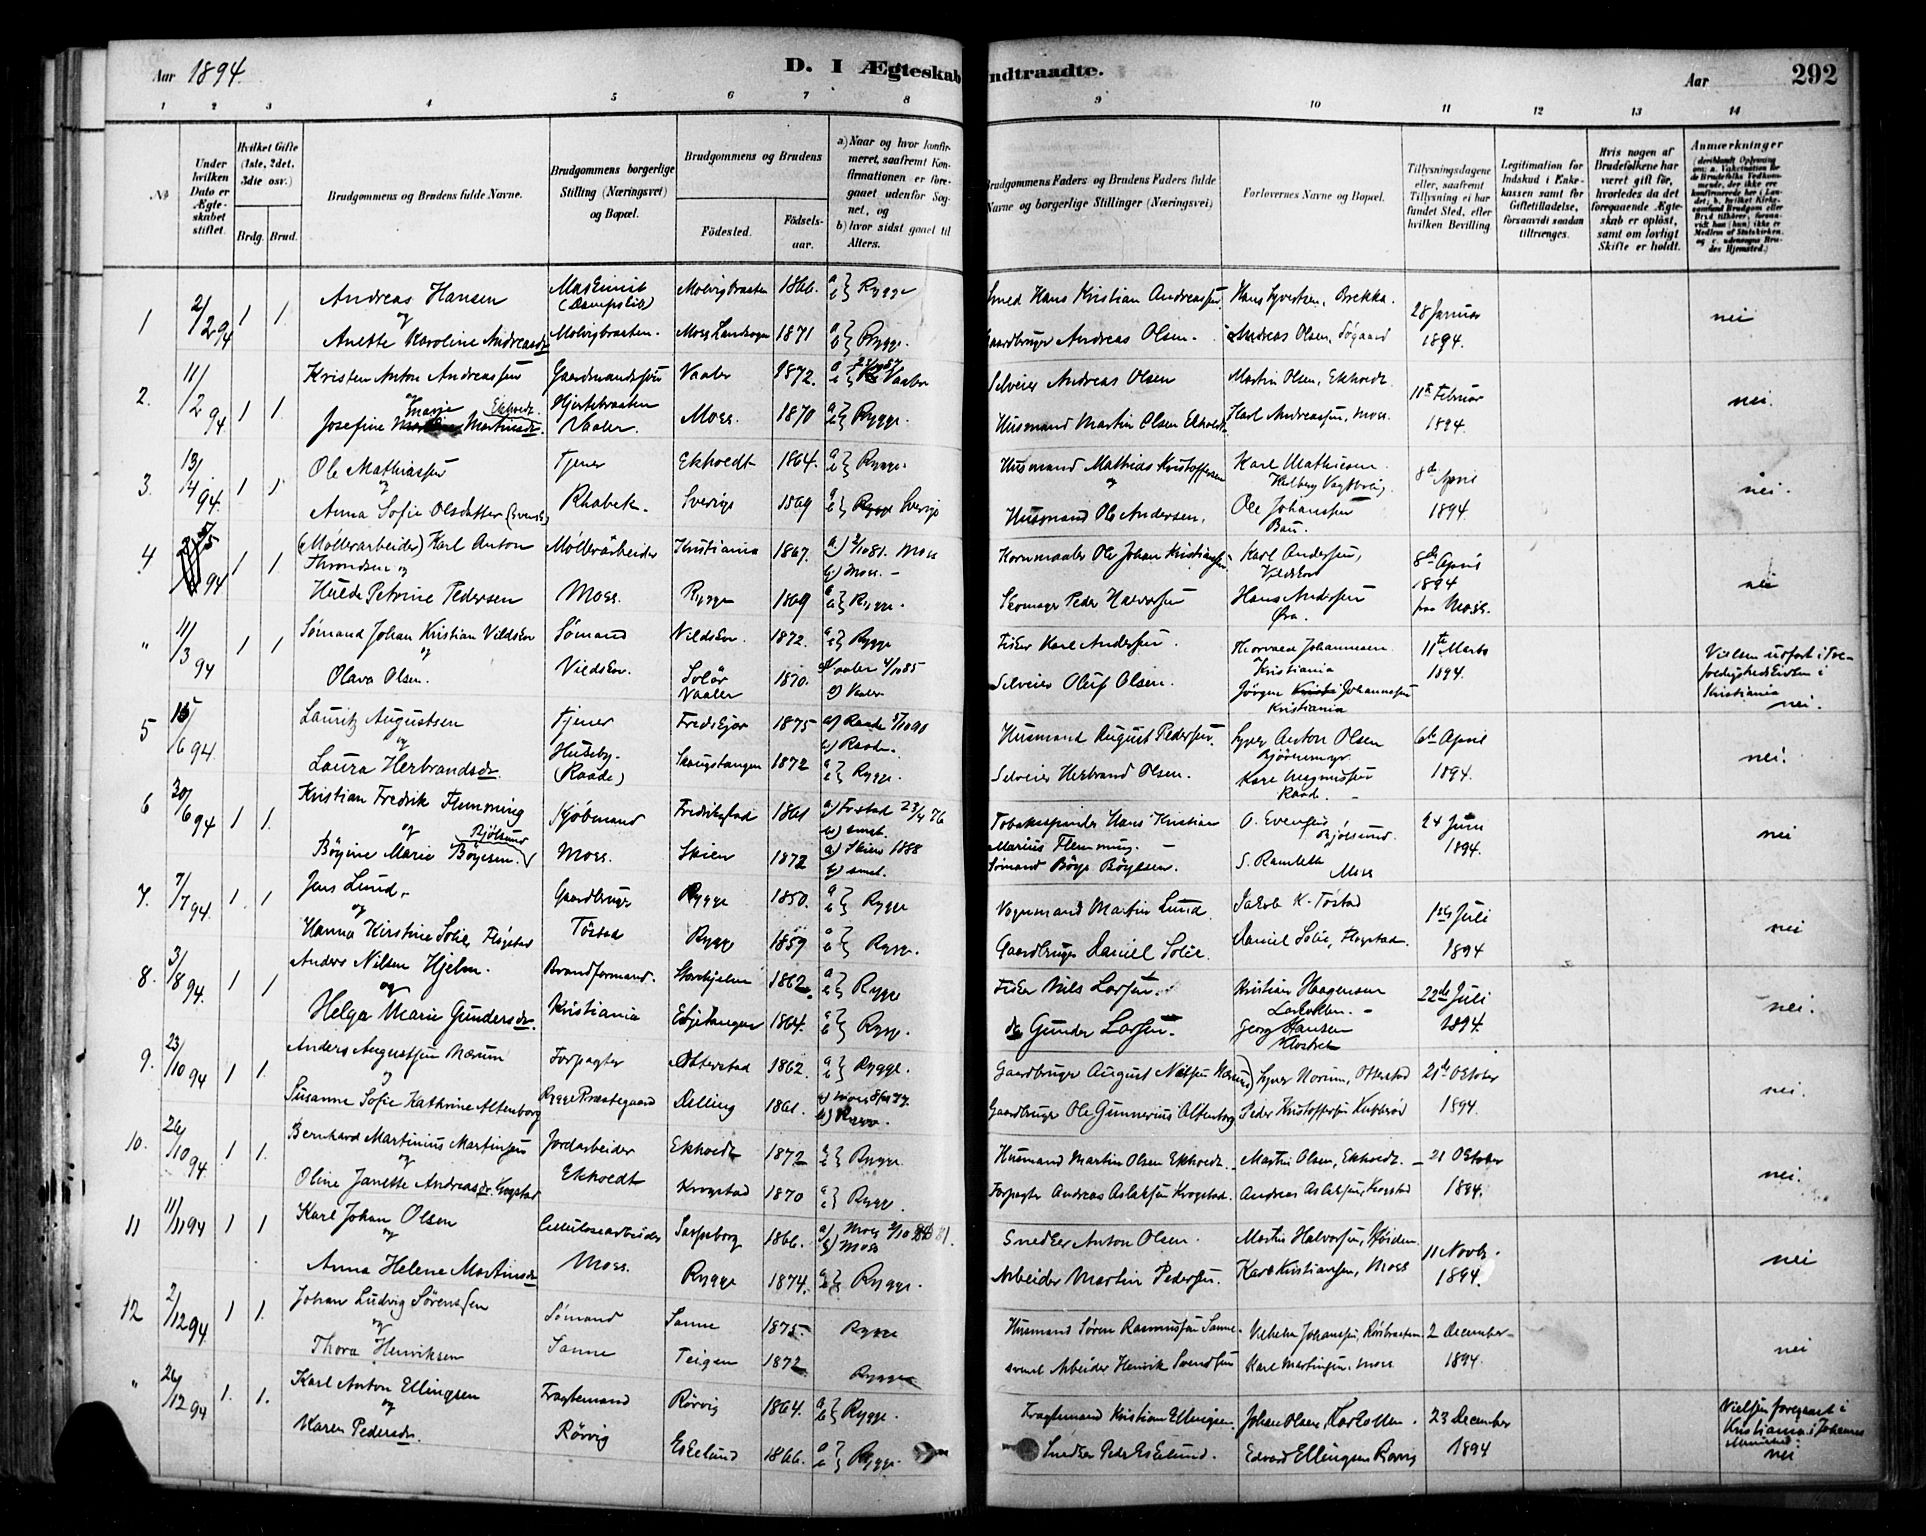 Aar 1894.
D. I Ægteskab
indtraadte.
Aar
292
1 2 3 4 5 6 7 8 9 10 11 12 13 14
No
Under hvilken Dato er Ægteskabet stiftet.
Hvilket Gifte (1ste, 2det, 3die osv.)
Brdg. Brud.
Brudgommens og Brudens fulde Navne.
Brudgommens borgerlige Stilling (Næringsvei) og Bopæl.
Brudgommens og Brudens
Fødested.
Fødselsaar.
a) Naar og hvor konfirmeret, saafremt Konfirmationen er foregaaet udenfor Sognet, og
b) hvor sidst gaaet til Alters.
Brudgommens Faders og Brudens Faders fulde Navne og borgerlige Stillinger (Næringsvei)
Forlovernes Navne og Bopæl.
Tillysningsdagene eller, saafremt Tillysning ei har fundet Sted, efter hvilken Bevilling
Legitimation for Indskud i Enkekassen samt for Giftetilladelse, forsaavidt saadan tiltrænges.
Hvis nogen af Brudefolkene har været gift før, hvorledes da det foregaaende Ægteskab er opløst, samt om lovligt Skifte er holdt.
Anmærkninger
1 2/2 94 1 1. Andreas Hansen Maskinist (Dampskib) Molvigbraaten 1866. a b Rygge Smed Hans Kristian Andreassen Hans Syvertsen, Brekka. 28 Januar nei
og
Anette Karoline Andreasdr Molvigbraaten. Moss Landsogn 1871 a b Rygge. Gaardbruger Andreas Olsen. Andreas Olsen, Søgaard 1894.
2. 11/2 94 1 1. Kristen Anton Andreassen Gaardmandssøn Vaaler 1872. Vaaler Selveier Andreas Olsen Martin Olsen, Ekholdt 11te Februar nei.
og Marie Ekholdt
Josefine Martinsdr. Vaaler. Moss. 1870 a b Rygge. Husmand Martin Olsen Ekholdt Karl Andreassen, Moss 1894.
3. 13/4 94. 1 1 Ole Mathiassen Tjener Ekholdt 1864. a b Rygge. Husmand Mathias Kristoffersen Karl Mathiesen 8de April nei.
og
Anna Sofie Olsdatter (Svensk) Rhabek. Sverige 1869 Rygge Sverige Husmand Ole Andersen. Ole Johanssen Bau. 1894.
4 94 1 1. (Møllerarbeider) Karl Anton Throndsen og Møllerarbeider Kristiania 1867. a) 2/10 81. Moss b) Moss. Kornmaaler Ole Johan Kristiansen Karl Andersen, Vildskov 8de April 1894 fra Moss. nei
Hulda Petrine Pedersen Moss. Rygge 1869 a b Rygge. Skomager Peder Halvorsen Hans Andersen Øra.
" 11/3 94 1 1. Sømand Johan Kristian Vildskov Sømand Vildskov. 1872. a b Rygge Fisker Karl Andersen Thorvald Johannesen Kristiania 11te Marts 1894. Vielsen udført i Trefoldighedskirken i Kristiania nei.
og
Olava Olsen. Vildskov. Solør Vaaler 1870. Vaaler 4/10 85 b) Vaaler Selveier Oluf Olsen. Jørgen Johannesen Kristiania
5 15/6 94 Lauritz Augustsen Tjener Fredskjær 1875 a) Raade 5/10 90 b) Raade. Husmand August Pedersen. Syver Anton Olsen Bjørnemyr 6te April nei.
og
Laura Herbrandsdr. Huseby (Raade) Skougstangen 1872 a b Rygge. Selveier Herbrand Olsen. Karl Magnussen Raade. 1894.
6 30/6 94 1 1. Kristian Fredrik Flemming Kjøbmand Fredrikstad 1861 a) Frstad 23/4 76 b) smst. Tobakspinder Hans Kristian Marius Flemming. O. Evensen Bjølsund 24 Juni 1894. nei
og Bjølsund
Bøyine Marie Bøyesen. Moss. Skien 1872 a) Skien 1888 b) smst. Sømand Bøye Bøyesen S. Ramleth Moss
7. 7/7 94. 1. 1 Jens Lund. Gaardbruger Rygge 1850. a b Rygge Vognmand Martin Lund. Jakob K. Tøstad 1ste Juli nei
og
Hanna Kirstine Solie, Flogstad Tøstad Rygge 1859 a b Rygge. Gaardbruger Daniel Solie. Daniel Solie, Flogstad. 1894
8. 3/8 94. 1 1 Anders Nilsen Hjelm. Brandformand. Storhjelm 1862. a b Rygge Fisker Nils Larsen. Kristian Haagensen Larkollen. 22de Juli nei.
og
Helga Marie Gundersdr. Kristiania Ekjetangen 1864. a b Rygge. do Gunder Larsen. Georg Hansen Klostret 1894.
9. 23/10 94 1 1. Anders Augustsen Nærum Forpagter Otterstad 1862. a b Rygge. Gaardbruger August Nilsen Nærum Syver Norum, Otterstad 21de Oktober nei.
og
Susanne Sofie Kathrine Altenborg Rygge Præstegaard Dilling 1861. Gaardbruger Ole Gunnerius Altenborg Peder Kristoffersen Kubberød 1894.
10. 26/10 94 1 1. Bernhard Martinius Martinsen Jordarbeider Ekholdt 1872 a b Rygge. Husmand Martin Olsen Ekholdt. Martin Olsen, Ekholdt. 21 Oktober nei.
og
Oline Janette Andreasdr. Krogstad Ekholdt Krogstad 1870 a b Rygge. Forpagter Andreas Aslaksen Krogstad. Andreas Aslaksen, Krogstad 1894.
11 11/11 94 1 1 Karl Johan Olsen Cellulosearbeider Sarpsborg 1866. a) Moss 2/10 81. b) Moss Snedker Anton Olsen. Martin Halvorsen, Høiden 11 Novbr. nei
og
Anna Helene Martinsdr Moss. Rygge 1874. a b Rygge. Arbeider Martin Pedersen. Karl Kristiansen, Moss 1894.
12 2/12 94 1 1. Johan Ludvig Sørenssen Sømand Sanne 1875. Rygge Husmand Søren Rasmussen Sanne. Vilhelm Johanssen, Röstbraaten 2 December nei
og
Thora Henriksen Sanne Teigen 1872 Rygge Arbeider Henrik Svendsen Karl Martinsen, Moss 1894.
" 26/12 94 1. 1. Karl Anton Ellingsen Fragtemand Rørvig 1864. a b Rygge. Fragtemand Kristian Ellingsen. Johan Olsen, Larkollen. 23 December Vielsen foregaaet i Kristiania i Johannes
og
Karen Pedersdr. Rørvig Eskelund 1866. a b Rygge. Snedker Peder Eskelund. Edvard Ellingsen Rørvig 1894 nei